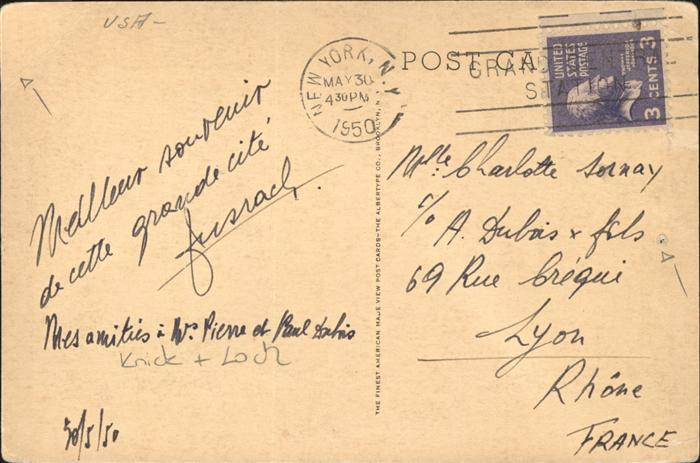 USA-
POST CA
NEW YORK, N.Y.
MAY 30
4 30 PM
1950
GRAND
UNITED
STATES
POSTAGE
3 CENTS 3
Meilleur souvenir
de cette grande cité
Mes amitiés à Mrs Pierre et Paul Dubois
Knick + Loch
30/5/50
THE FINEST AMERICAN MADE VIEW POST CARDS—THE ALBERTYPE CO., BROOKLYN, N.Y.
Mlle Charlotte Sornay
c/o A. Dubois & fils
69 Rue Créqui
Lyon
Rhône
FRANCE